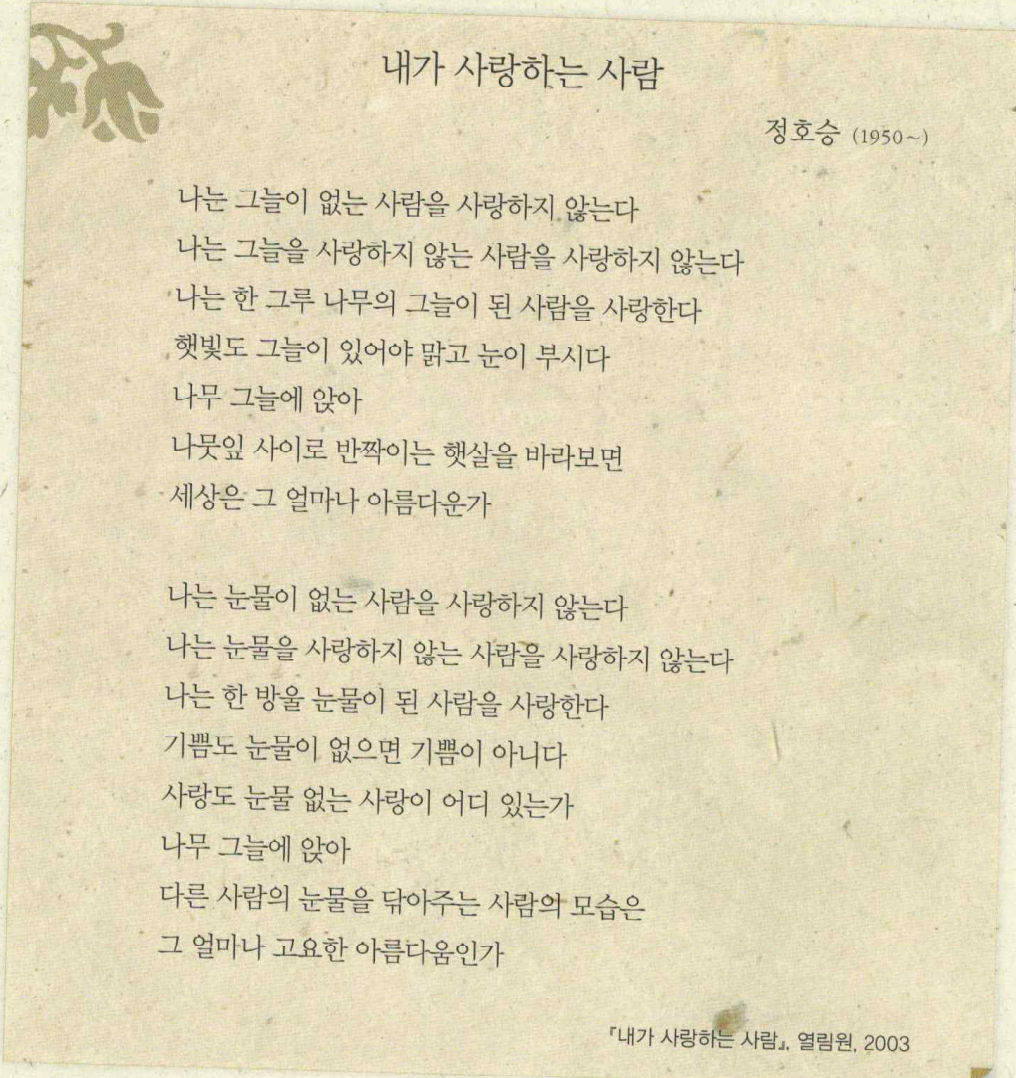 내가 사랑하는 사람
정호승 (1950~)
나는 그늘이 없는 사람을 사랑하지 않는다
나는 그늘을 사랑하지 않는 사람을 사랑하지 않는다
나는 한 그루 나무의 그늘이 된 사람을 사랑한다
햇빛도 그늘이 있어야 맑고 눈이 부시다
나무 그늘에 앉아
나뭇잎 사이로 반짝이는 햇살을 바라보면
세상은 그 얼마나 아름다운가
나는 눈물이 없는 사람을 사랑하지 않는다
나는 눈물을 사랑하지 않는 사람을 사랑하지 않는다
나는 한 방울 눈물이 된 사람을 사랑한다
기쁨도 눈물이 없으면 기쁨이 아니다
사랑도 눈물 없는 사랑이 어디 있는가
나무 그늘에 앉아
다른 사람의 눈물을 닦아주는 사람의 모습은
그 얼마나 고요한 아름다움인가
『내가 사랑하는 사람』, 열림원, 2003